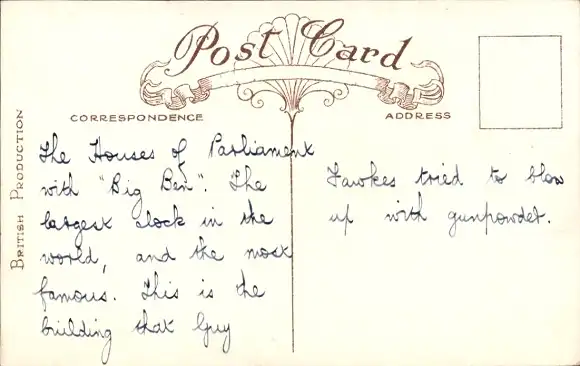 Post Card
CORRESPONDENCE
ADDRESS
BRITISH PRODUCTION
The Houses of Parliament
with "Big Ben". The
largest clock in the
world, and the most
famous. This is the
building that Guy
Fawkes tried to blow
up with gunpowder.